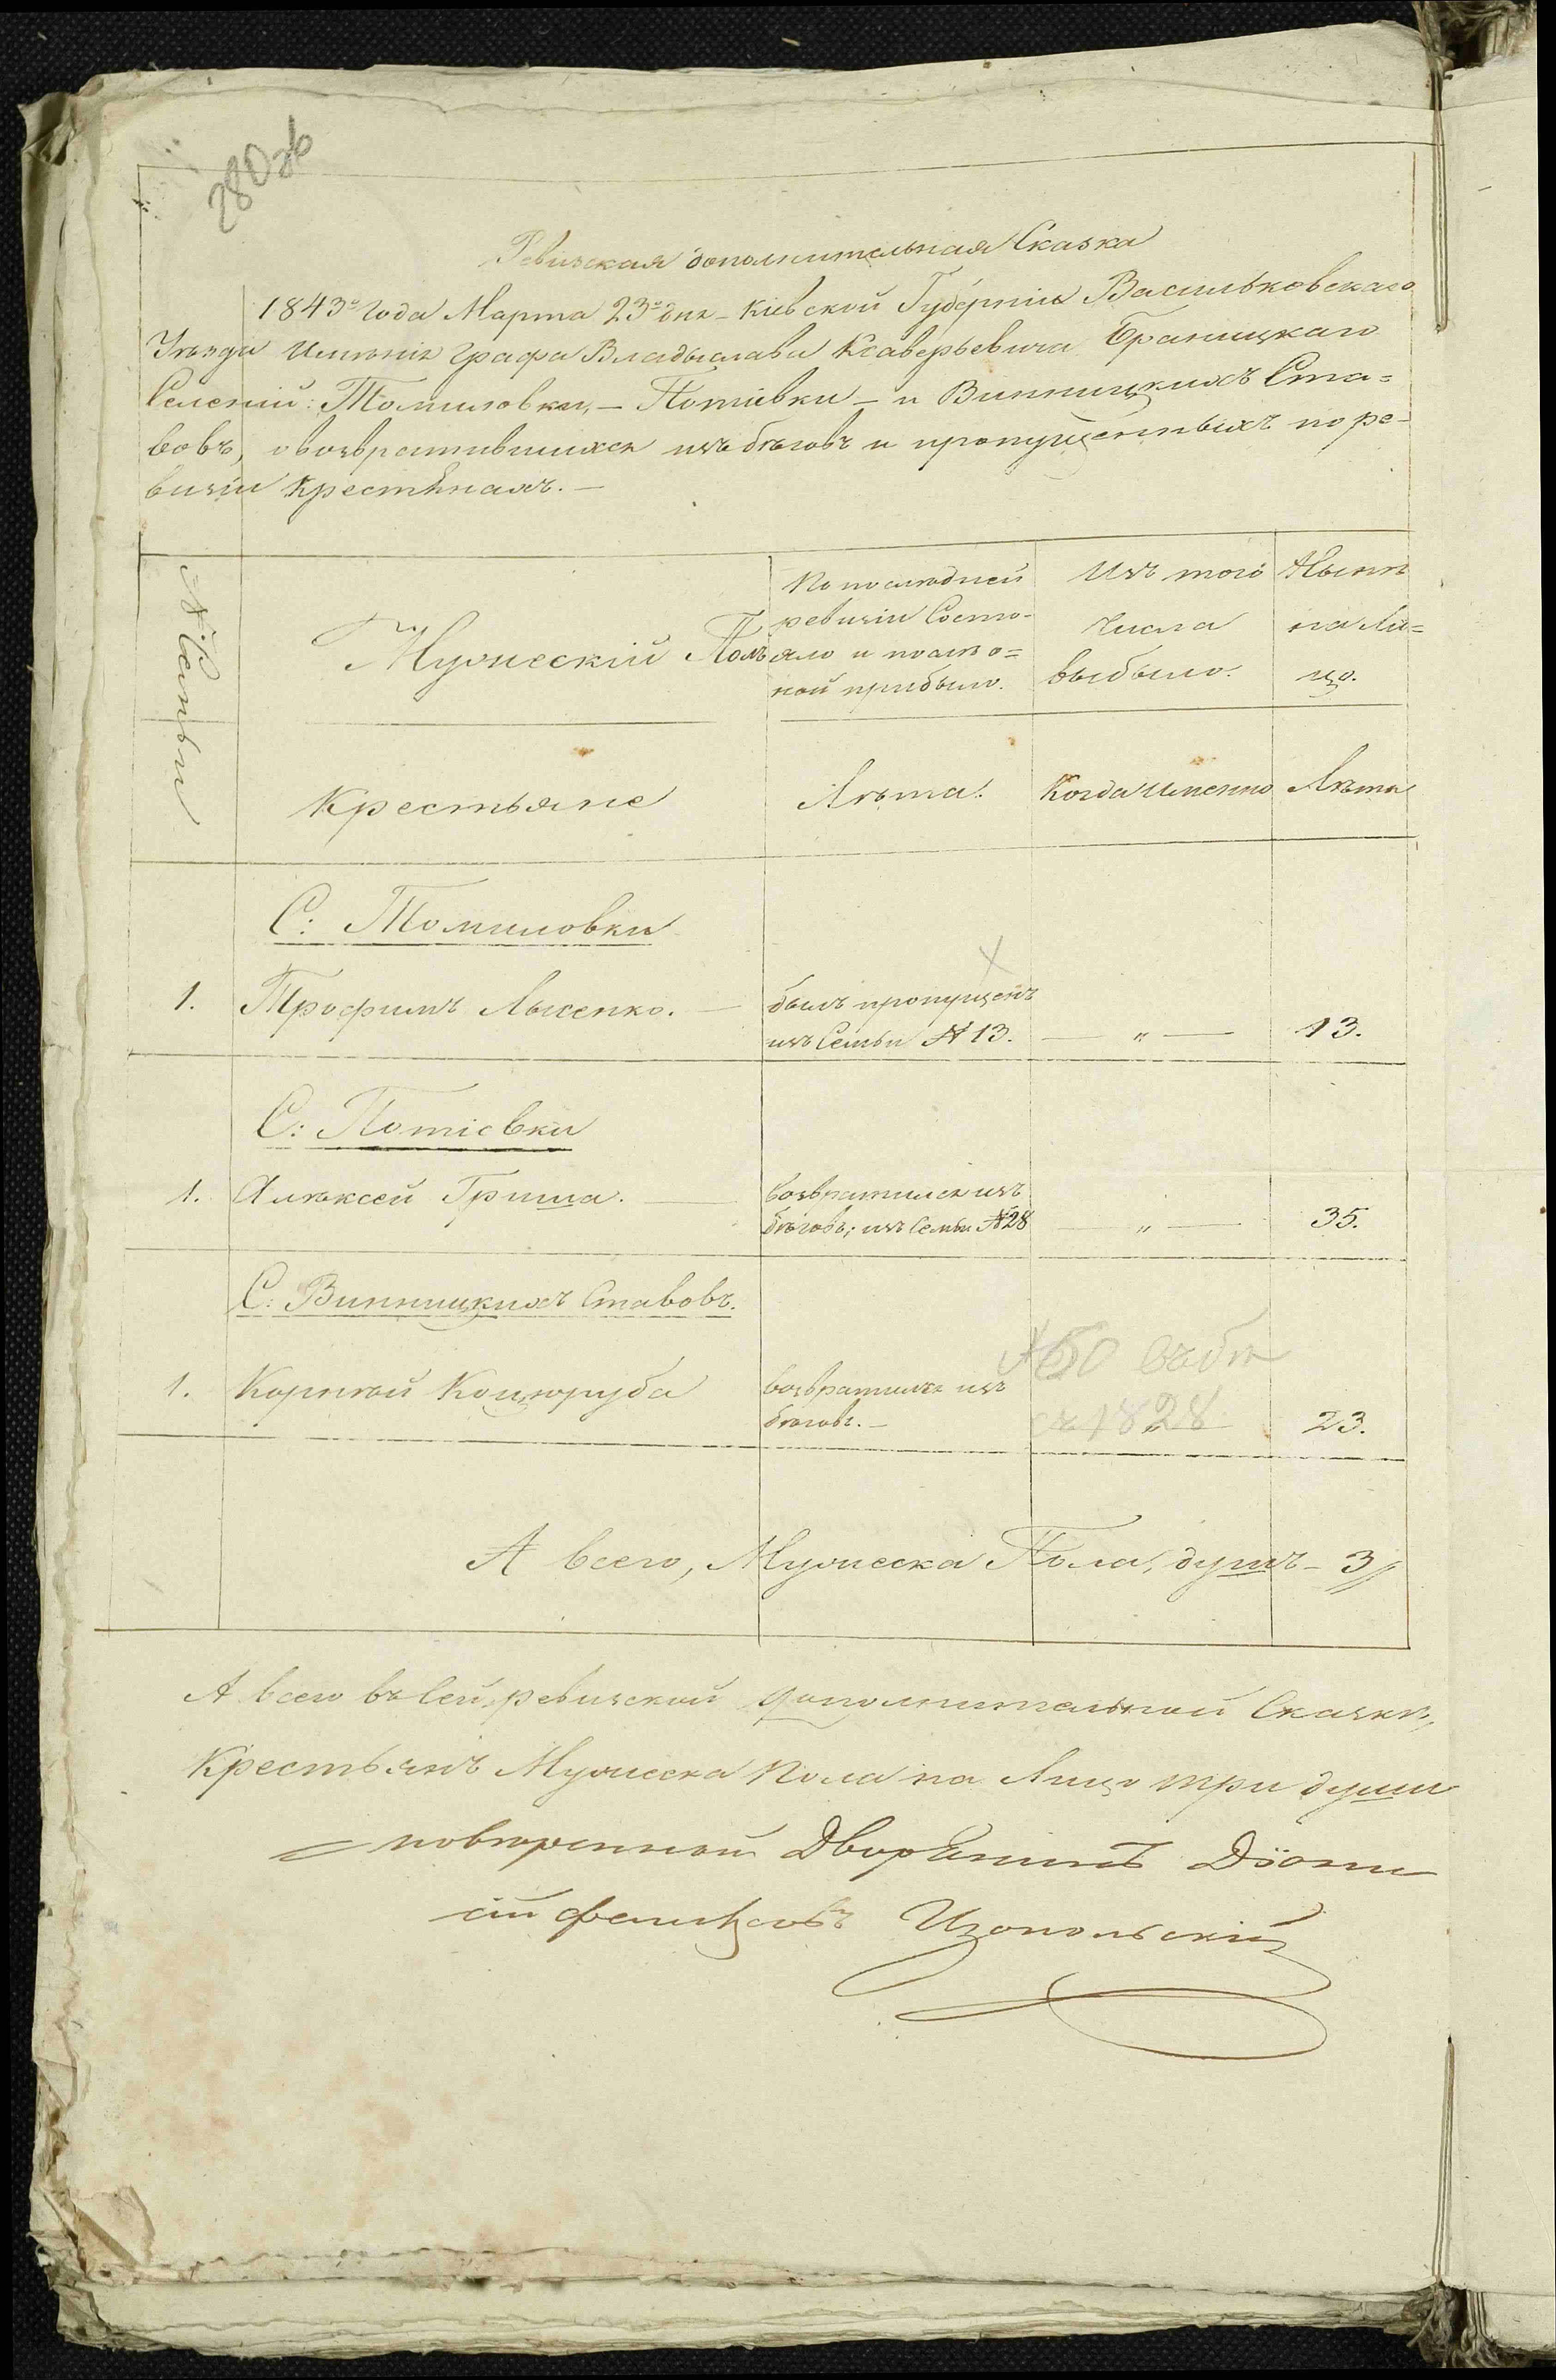 280об
Ревизская дополнительная Сказка
1843го года Марта 23го дня – Кіевской Губерніи Васильковскаго
Уѣзда Имѣнія Графа Владыслава Ксаверьевича Браницкаго
Селеній: Томиловки, – Потіевки – и Винницкихъ Ста=
вовъ, о возвратившихся изъ бѣговъ и пропущенныхъ по ре-
визіи крестьянахъ. –
№ Семьи
Мужескій Полъ
По последней
ревизіи Состо-
яло и послѣ о=
ной прибыло.
Изъ того
числа
выбыло.
Нынѣ
на Ли=
цо.
Крестьяне
Лѣта.
Когда именно
Лѣта
С: Томиловки
1. Трофимъ Лысенко. — былъ пропущенъ
изъ Семьи № 13. — „ — 13.
С: Потіевки
1. Алѣксей Гриша. — возвратился изъ
бѣговъ; изъ Семьи №28 — „ — 35.
С: Винницкихъ Ставовъ.
№60 въ бѣ
1. Корнѣй Коцюруба возвратился изъ
бѣговъ. – съ 1828 23.
А всего, Мужеска Пола, душъ – 3
А всего въ Сей ревизской дополнительной Сказкѣ,
Крестьянъ Мужеска пола на Лицо три души
повѣренный Дворянинъ Діони
сій Изопольскій